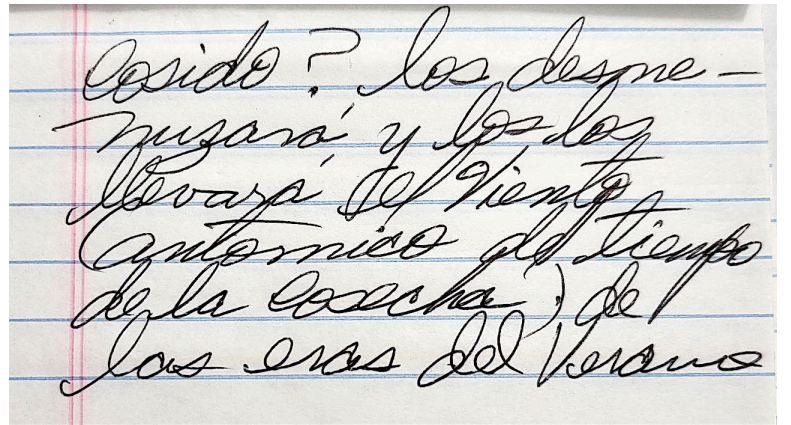 cosido? los desme-
nuzará y los los
llevará el viento
(antomico de tiempo
de la cosecha) de
las eras del Verano